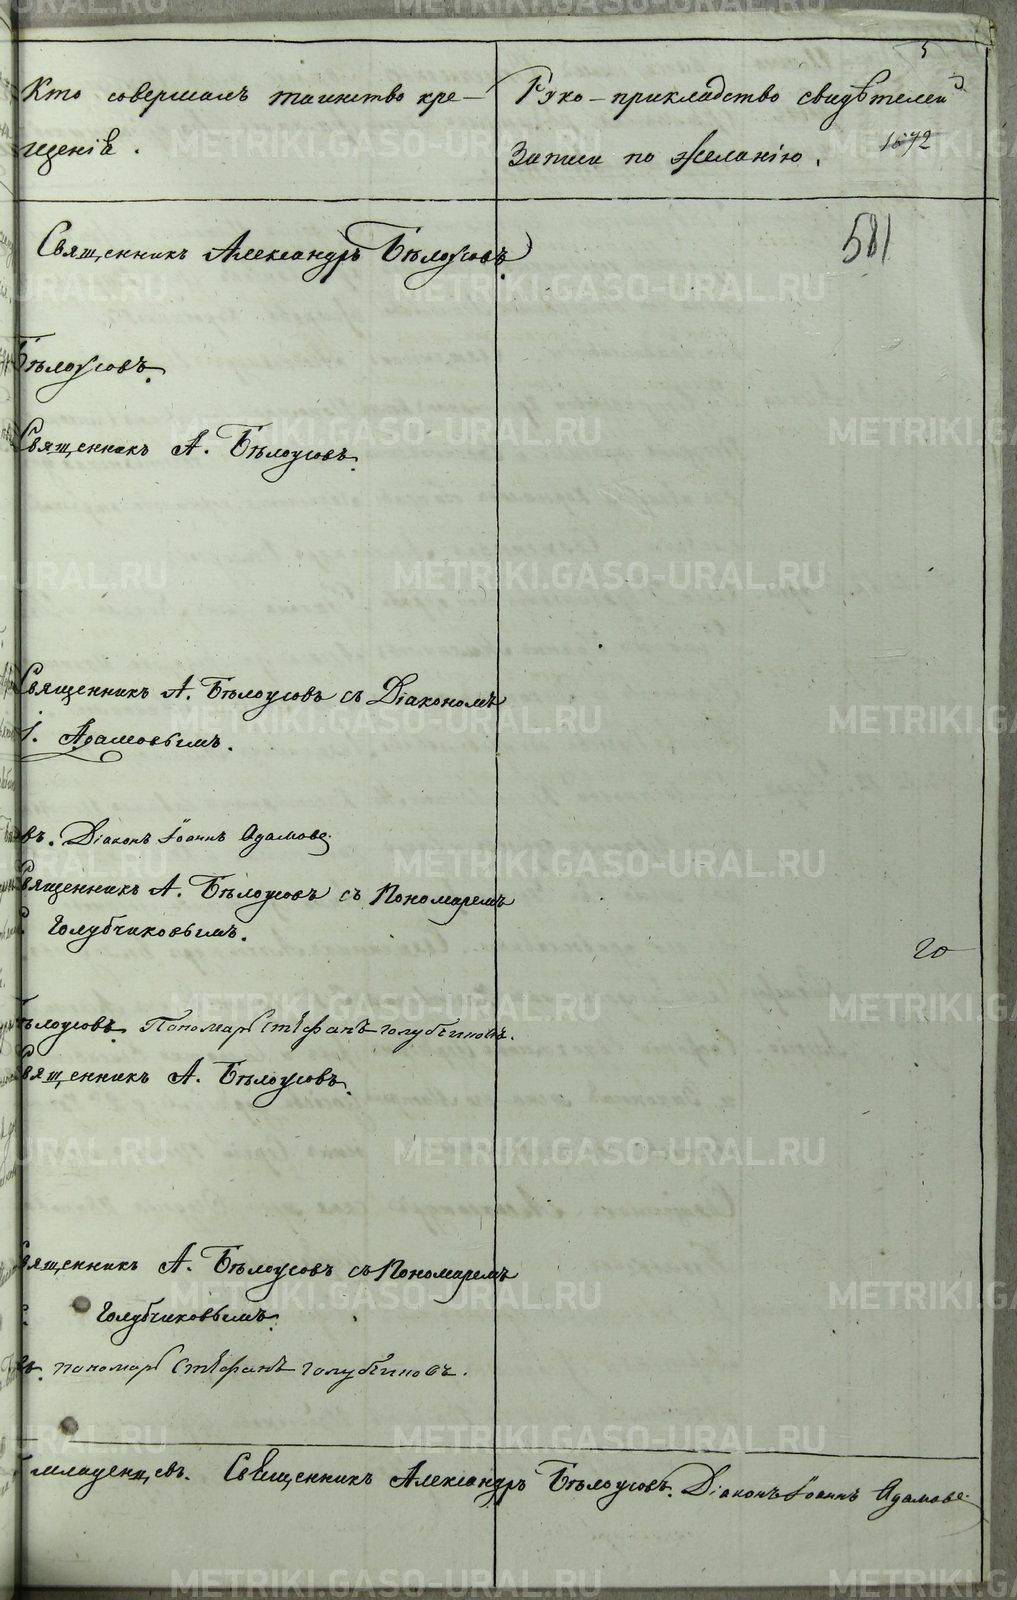 5
Кто совершалъ таинство кре-
щенія.
Руко-прикладство свидѣтелей
записи по желанію.
1672
581
Священникъ Александръ Бѣлоусовъ.
Бѣлоусовъ.
Священникъ А. Бѣлоусовъ.
Священникъ А. Бѣлоусовъ съ Діакономъ
І. Адамовымъ.
въ. Діаконъ Іоаннъ Адамовъ.
Священникъ А. Бѣлоусовъ съ Пономаремъ
Голубчиковымъ.
20
Бѣлоусовъ. Пономарь Стефанъ Голубчиковъ.
Священникъ А. Бѣлоусовъ.
Священникъ А. Бѣлоусовъ съ Пономаремъ
Голубчиковымъ.
въ. пономарь Стефанъ Голубчиковъ.
младенцевъ. Священникъ Александръ Бѣлоусовъ. Діаконъ Іоаннъ Адамовъ.
METRIKI.GASO-URAL.RU